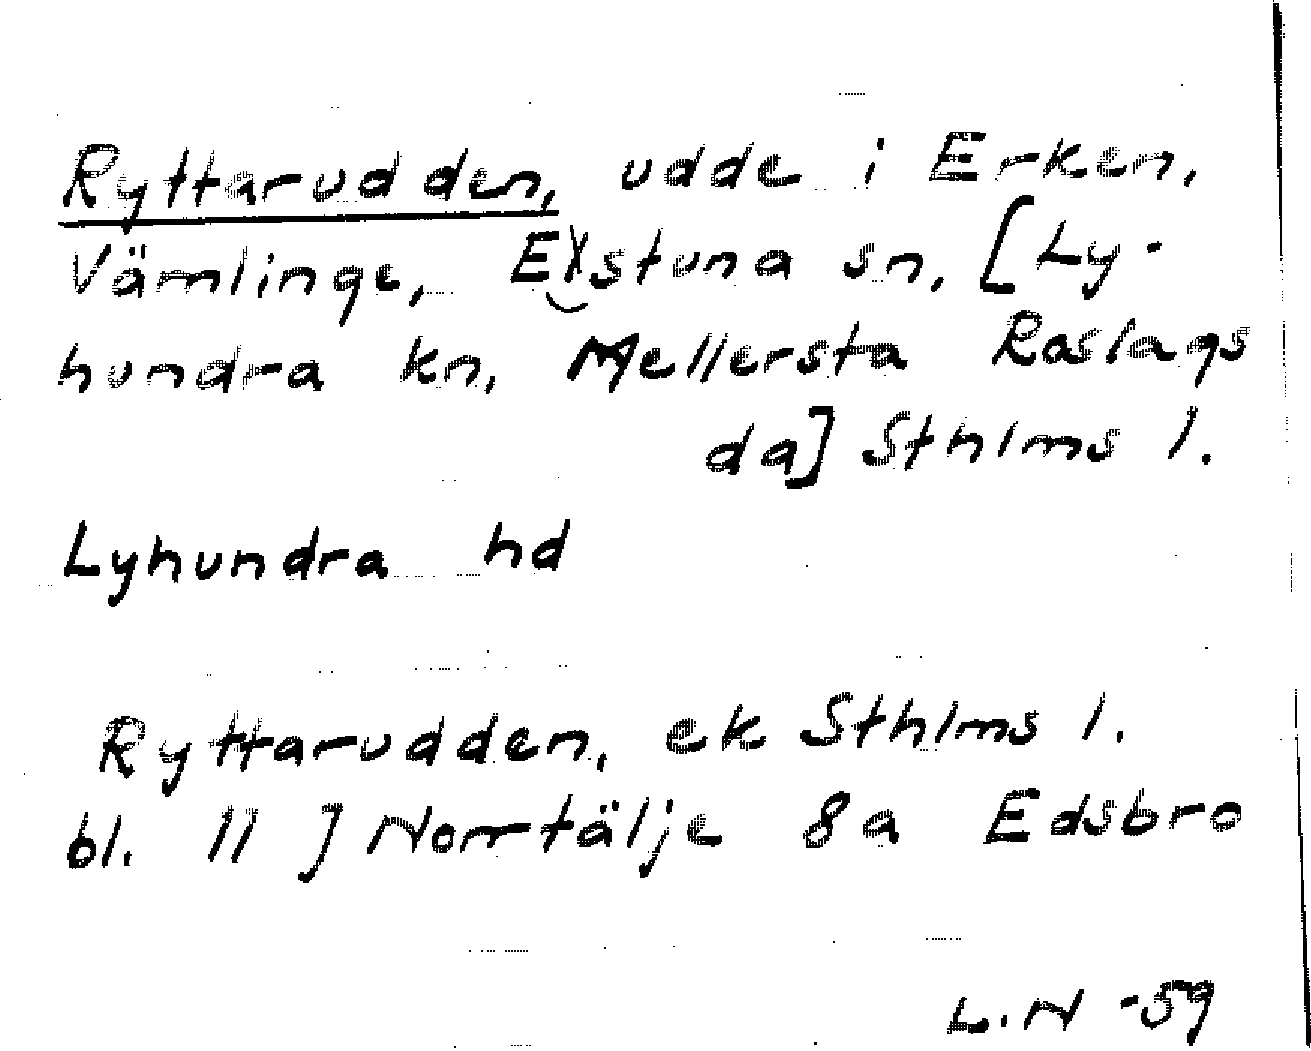 Ryttarudden, udde i Erken,
Vämlinge, Estuna sn, [Ly-
hundra kn, Mellersta Roslags
da] Sthlms l.
Lyhundra hd
Ryttarudden, ek Sthlms l.
bl. 11 J Norrtälje 8a Edsbro
L.N -59